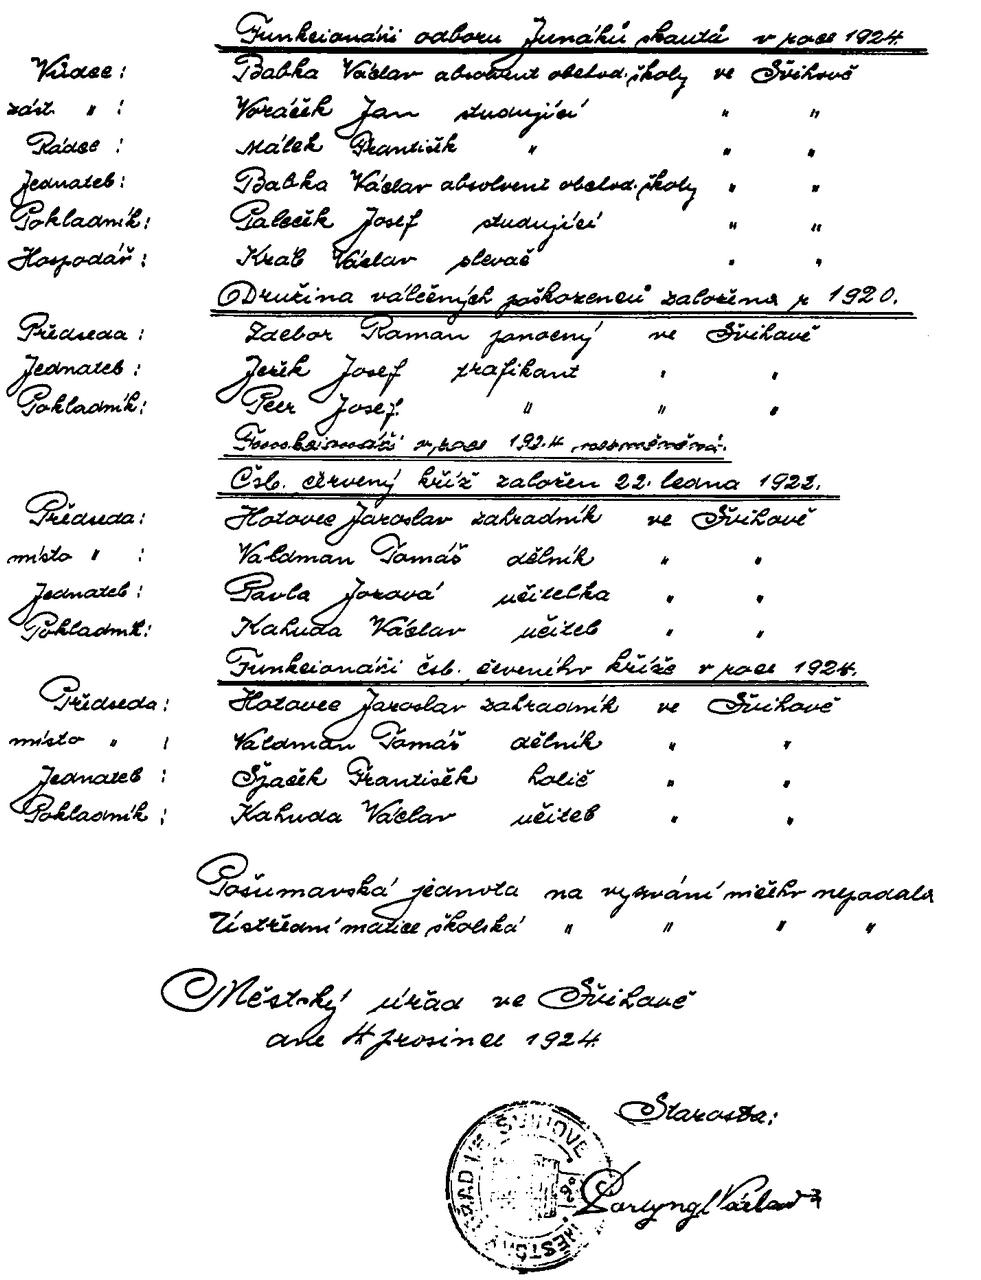 Funkcionáři odboru Junáků skautů v roce 1924.
Vůdce: Babka Václav absolvent obchod. školy ve Švihově
zást. " : Voráček Jan studující " "
Rádce : Málek František " " "
Jednatel: Babka Václav absolvent obchod. školy " "
Pokladník: Paleček Josef studující " "
Hospodář: Král Václav slevač " "
Družina válečných poškozenců založena r 1920.
Předseda: Zdebor Roman ve Švihově
Jednatel: Ježek Josef trafikant " "
Pokladník: Peer Josef " " "
Funkcionáři v roce 1924 nezměněni.
Čsl. červený kříž založen 22. ledna 1922.
Předseda: Hotovec Jaroslav zahradník ve Švihově
místo " : Valdman Tomáš dělník " "
Jednatel: Pavla Jorová učitelka " "
Pokladník: Kahuda Václav učitel " "
Funkcionáři čsl. červeného kříže v roce 1924.
Předseda: Hotovec Jaroslav zahradník ve Švihově
místo " : Valdman Tomáš dělník " "
Jednatel : Špaček František holič " "
Pokladník : Kahuda Václav učitel " "
Pošumavská jednota na vyzvání ničeho nepodala
Ústřední matice školská " " " "
Městský úřad ve Švihově
dne 4 prosince 1924.
Starosta:
MĚSTSKÝ ÚŘAD VE ŠVIHOVĚ
Václav